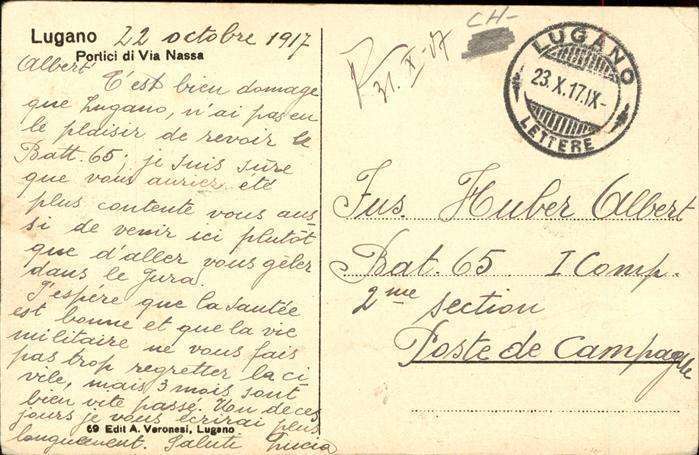 Lugano 22 octobre 1917
Portici di Via Nassa
Albert
C'est bien domage
que Lugano, n'ai pas eu
le plaisir de revoir le
Batt. 65, je suis sûre
que vous auriez été
plus contente vous aus
si de venir ici plutôt
que d'aller vous geler
dans le Jura.
J'espére que la santée
est bonne et que la vie
militaire ne vous fais
pas trop regretter la ci
vile, mais 3 mois sont
bien vite passé. Un de ces
jours je vous ecrirai plus
longuement. Saluti Lucia
69 Edit A. Veronesi, Lugano
R 31. X-17
CH-
LUGANO
23.X.17.IX-
LETTERE
Fus. Huber Albert
Bat. 65 I Comp.
2me section
Poste de Campagne